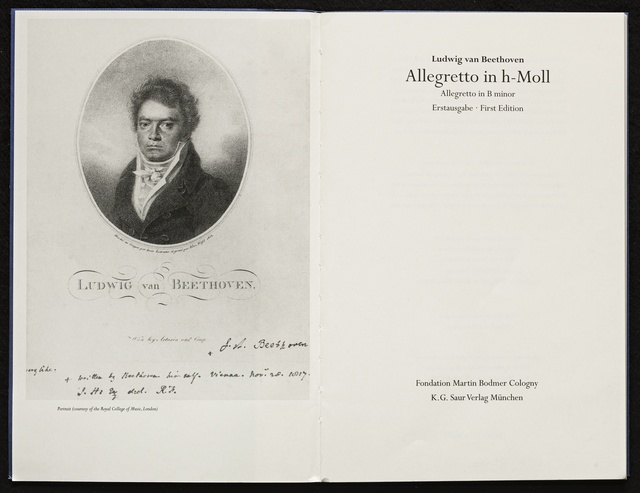 LUDWIG van BEETHOVEN.
Beethoven
written by Beethoven himself. Vienna. Novr 28. 1817.
Portrait (courtesy of the Royal College of Music, London)
Ludwig van Beethoven
Allegretto in h-Moll
Allegretto in B minor
Erstausgabe · First Edition
Fondation Martin Bodmer Cologny
K. G. Saur Verlag München